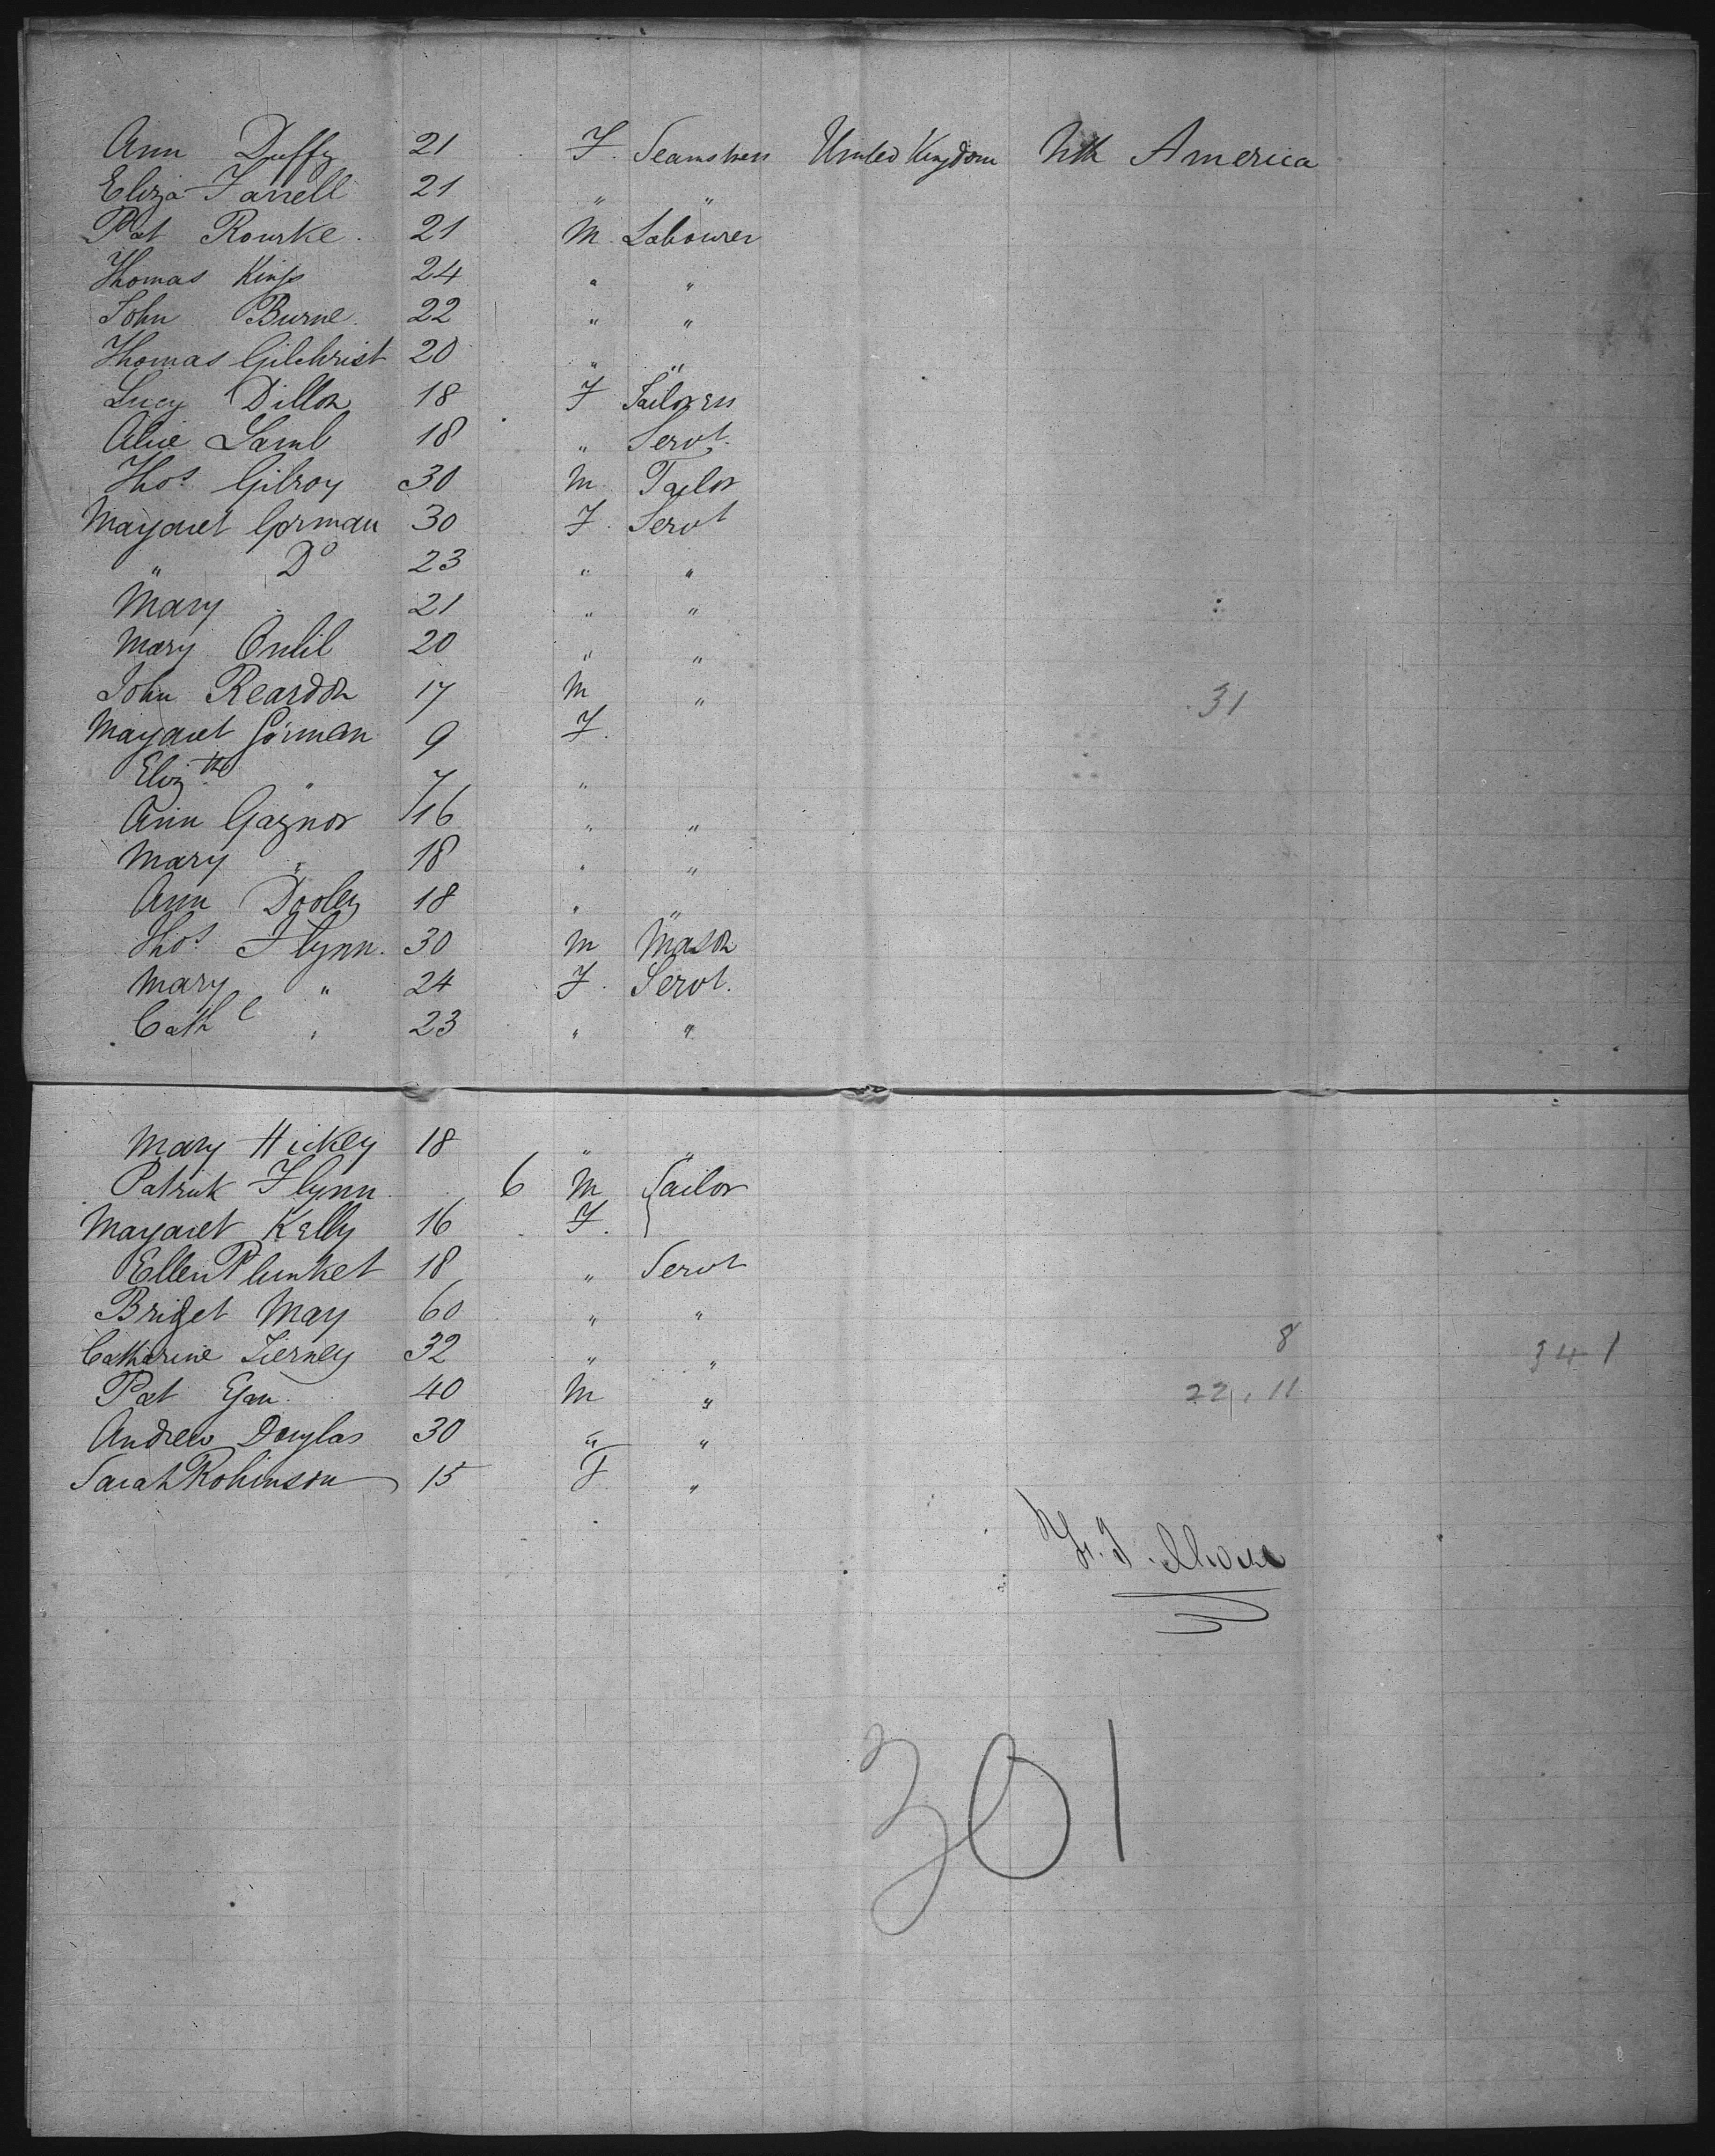 Ann Duffy 21 F. Seamstress United Kingdom Nth America
Eliza Farrell 21 " "
Pat Rourke. 21 M. Labourer
Thomas King 24 " "
John Burne. 22 " "
Thomas Gilchrist 20 " "
Lucy Dillon 18 F Tailoress
Alice Lamb 18 " Servt.
Thos. Gilroy 30 M. Tailor
Margaret Gorman 30 F. Servt
" Do 23 " "
Mary 21 " "
Mary 20 " "
John Reardon 17 M " 31
Margaret Gorman 9 F.
Elizth " 7 "
Ann Gaynor 16 " "
Mary " 18 " "
Ann Dooley 18 " "
Thos Flynn. 30 M Mason
Mary " 24 F. Servt.
Cathe " 23 " "
Mary Hickey 18 " "
Patrick Flynn 6 M Tailor
Margaret Kelly 16 F.
Ellen Plunket 18 " Servt
Bridget May 60 " "
Catharine Tierney 32 " " 8 341
Pat Egan. 40 M " 22, 11
Andrew Douglas 30 " "
Sarah Robinson 15 F "
301